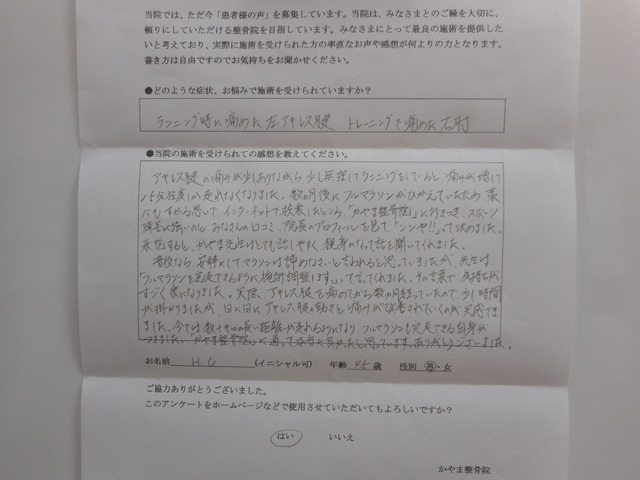 当院では、ただ今「患者様の声」を募集しています。当院は、みなさまとのご縁を大切に、
頼りにしていただける整骨院を目指しています。みなさまにとって最良の施術を提供した
いと考えており、実際に施術を受けられた方の率直なお声や感想が何よりの力となります。
書き方は自由ですのでお気持ちをお聞かせください。
●どのような症状、お悩みで施術を受けられていますか？
ランニング時に痛めた左アキレス腱、トレーニングで痛めた右肘
●当院の施術を受けられての感想を教えてください。
アキレス腱の痛みが少しありながら、少し無理してランニングをしていると、痛みが増して
15分程度しか走れなくなりました。数ヵ月後にフルマラソンがひかえていたため、藁
にもすがる思いで、インターネットで検索したところ「かやま整骨院」に行きつき、スポーツ
障害に強いのと、みなさんの口コミ、院長のプロフィールを見て、「ココや!!」って決めました。
来院すると、かやま先生はとても話しやすく、親身になって話を聞いてくれました。
普段なら、安静にしてマラソンは諦めなさいと言われると思っていましたが、先生は
「フルマラソンを完走できるように施術調整します」って言ってくれました。その言葉で気持ちが
すごく楽になりました。実際、アキレス腱を痛めてから数ヵ月経っていたので、少し時間
が掛かりましたが、日に日にアキレス腱の動きと痛みが改善されていくのが実感でき
ました。今では数十キロの長い距離が走れるようになり、フルマラソンも完走できる自身が
つきました。「かやま整骨院」に通って本当に良かったと思っています。ありがとうございました。
お名前 H.C (イニシャル可) 年齢 45 歳 性別 男・女
ご協力ありがとうございました。
このアンケートをホームページなどで使用させていただいてもよろしいですか？
はい いいえ
かやま整骨院